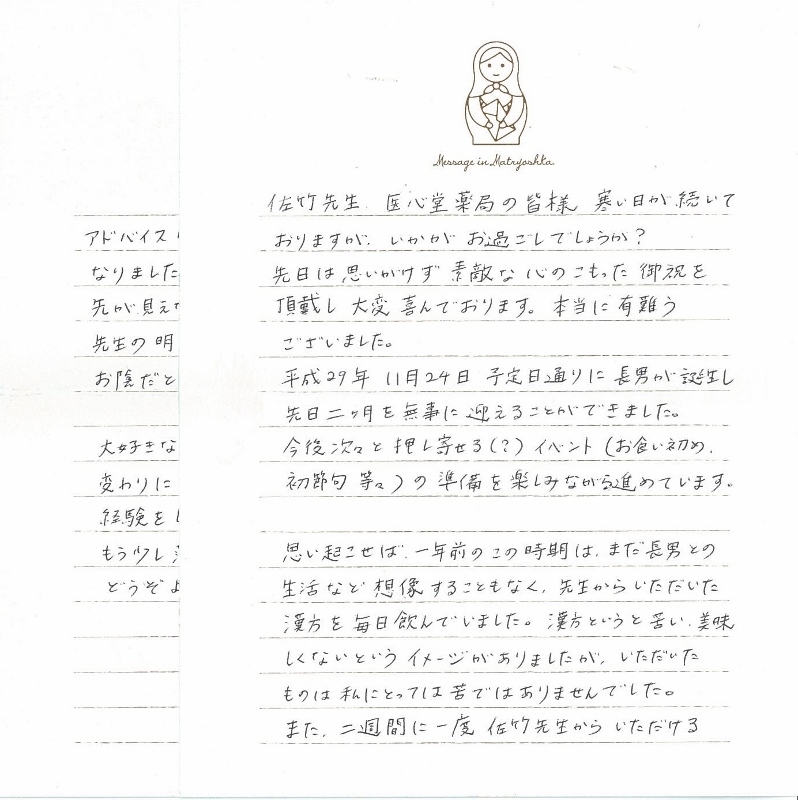 Message in Matryoshka
佐竹先生、医心堂薬局の皆様 寒い日が続いて
おりますが、いかがお過ごしでしょうか?
先日は思いがけず素敵な心のこもった御祝を
頂戴し大変喜んでおります。本当に有難う
ございました。
平成29年11月24日 予定日通りに長男が誕生し
先日二ヶ月を無事に迎えることができました。
今後次々と押し寄せる(?)イベント(お食い初め、
初節句等々)の準備を楽しみながら進めています。
思い起こせば、一年前のこの時期は、まだ長男との
生活など想像することもなく、先生からいただいた
漢方を毎日飲んでいました。漢方というと苦い、美味
しくないというイメージがありましたが、いただいた
ものは私にとっては苦ではありませんでした。
また、二週間に一度佐竹先生からいただける
アドバイス
なりました
先が見えな
先生の明
お陰だと
大好きな
変わりに
経験をし
もう少し
どうぞよ